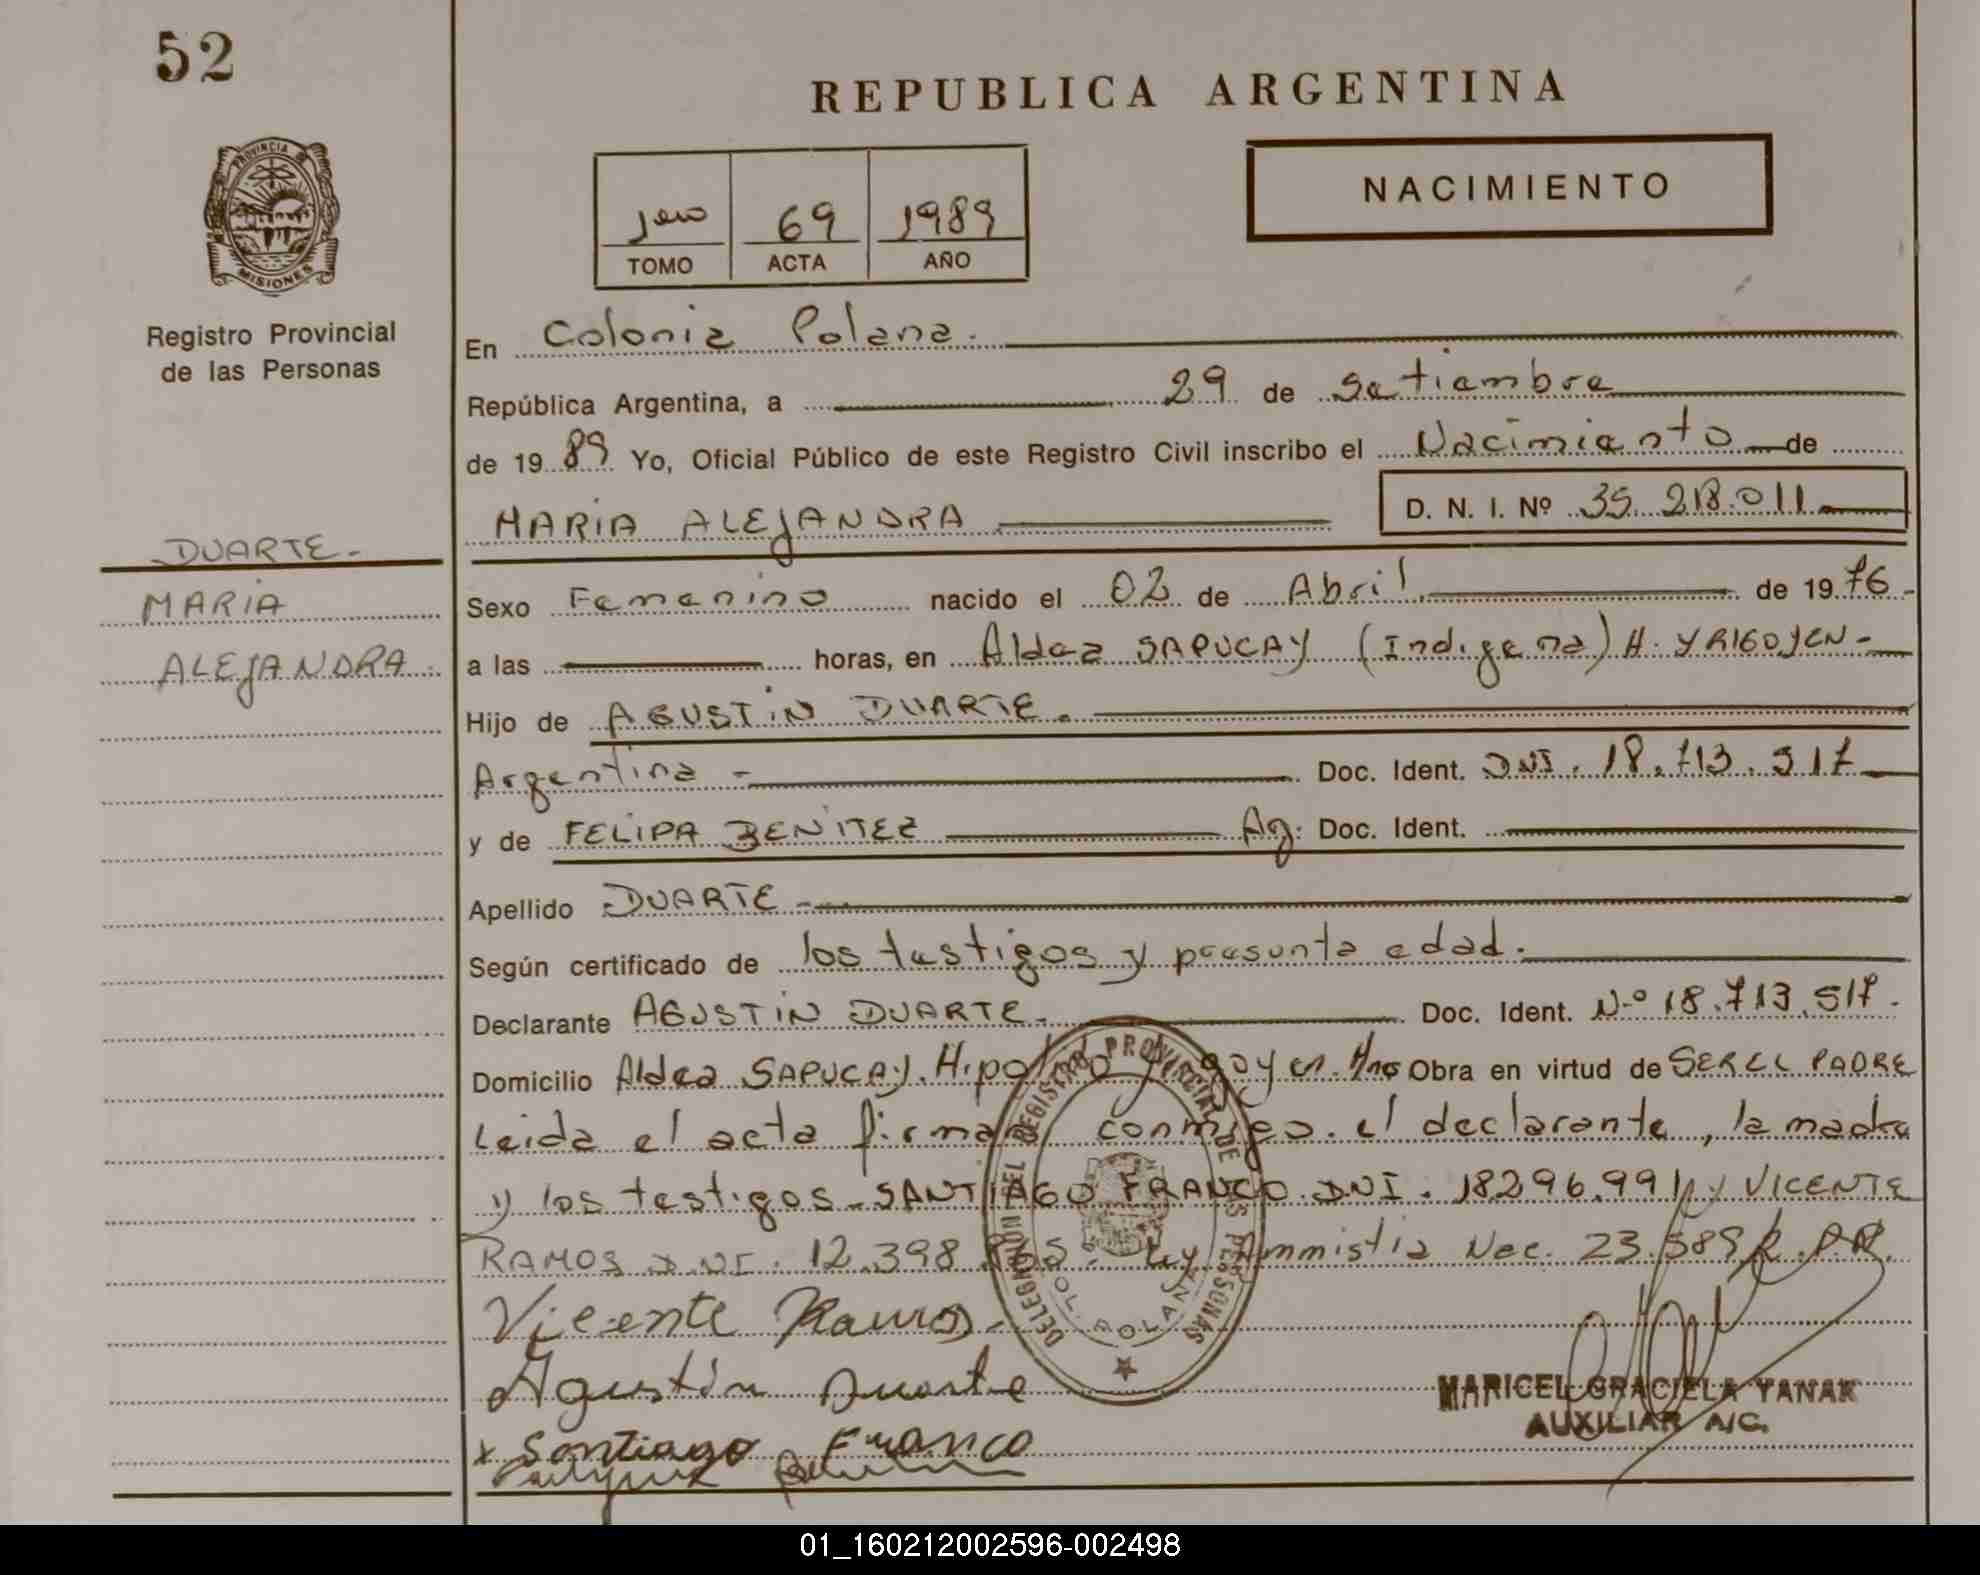 52
REPUBLICA ARGENTINA
PROVINCIA DE
MISIONES
Registro Provincial
de las Personas
1ero 69 1989
TOMO ACTA AÑO
NACIMIENTO
En Colonia Polana.
República Argentina, a 29 de Setiembre
de 1989 Yo, Oficial Público de este Registro Civil inscribo el Nacimiento de
MARIA ALEJANDRA D. N. I. Nº 35.218.011
DUARTE.-
MARIA
ALEJANDRA.
Sexo Femenino nacido el 02 de Abril de 1976-
a las horas, en Aldea SAPUCAY (Indigena) H. YRIGOYEN-
Hijo de AGUSTIN DUARTE.
Argentina - Doc. Ident. DNI. 18.713.517
y de FELIPA BENITEZ Ag: Doc. Ident.
Apellido DUARTE-
Según certificado de los testigos y presunta edad.
Declarante AGUSTIN DUARTE- Doc. Ident. Nº 18.713.517.
Domicilio Aldea SAPUCAY. Hipolito Yrigoyen. Mnes Obra en virtud de SER EL PADRE
Leida el acta firman conmigo. el declarante, la madre
y los testigos-SANTIAGO FRANCO. DNI. 18296.991 y VICENTE
RAMOS D.NI. 12.398 Ley Ammistia Nac. 23.
DELEGACION DEL REGISTRO PROVINCIAL DE LAS PERSONAS
COL. POLANA
Vicente Ramos.
Agustín Duarte
MARICEL GRACIELA YANAK
AUXILIAR A/C.
x Santiago Franco
01_160212002596-002498